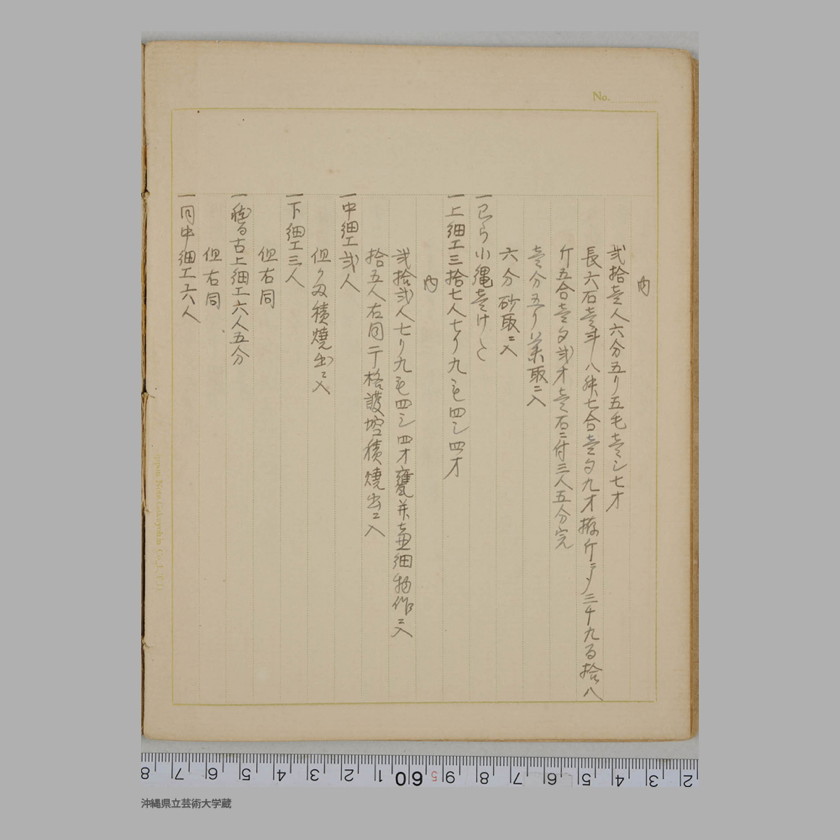 No.
内
弐拾壱人六分五り五毛壱シ七才
長六石壱斗八舛七合壱夕九才 斤ニ〆三千九百拾八
斤五合壱夕弐才壱石ニ付三人五分完
壱分五り薬取ニ入
六分砂取ニ入
一 わら小縄壱けた
一 上細工三拾七人七り九毛四シ四才
内
弐拾弐人七り九毛四シ四才甕并壺細物作ニ入
拾五人右同所格護 積焼出ニ入
一 中細工弐人
但 積焼出ニ入
一 下細工三人
但右同
一 稽古上細工六人五分
但右同
一 同中細工六人
8 7 6 5 4 3 2 1 60 9 8 7 6 5 4 3 2
沖縄県立芸術大学蔵